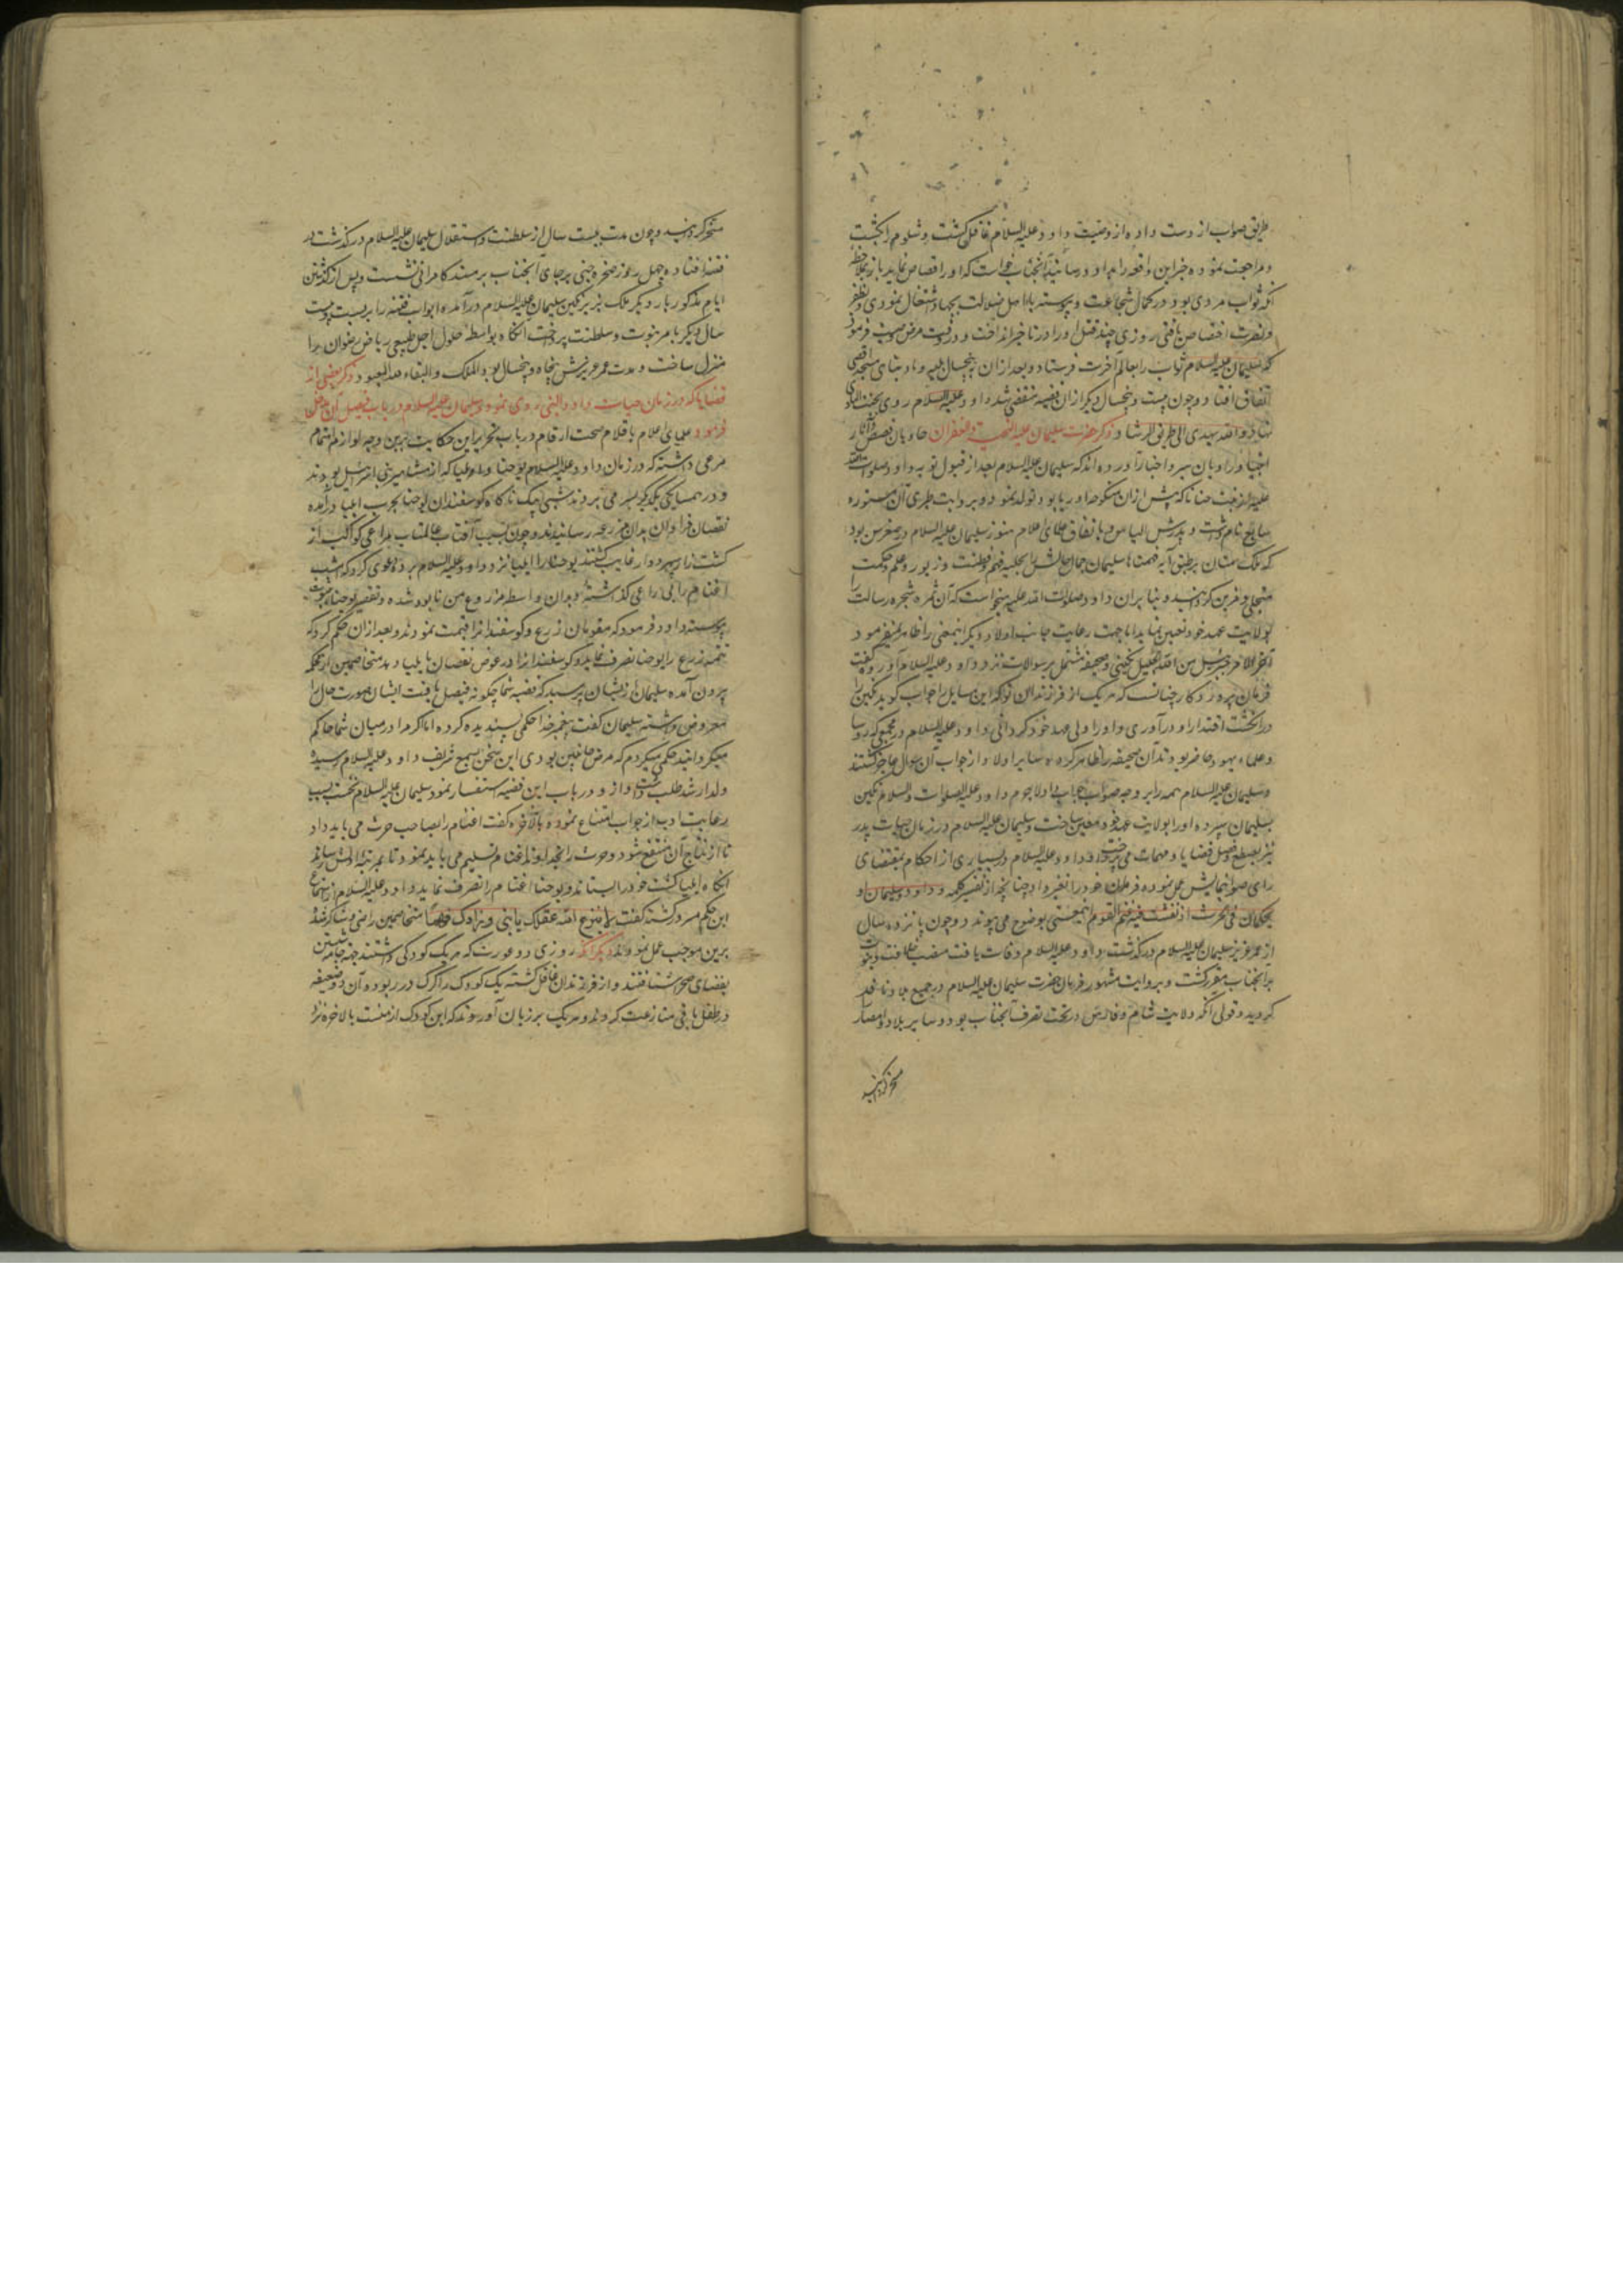 طریق صواب از دست داده از وصیت داود علیه السلام غافل گشت و شلوم را بکشت
و مراجعت نموده خبر این واقعه را بداود رسانید آنجناب خواست که او را قصاص نماید باز بملاحظه
آنکه ثواب مردی بود در کمال شجاعت و پیوسته با اهل ضلالت بجهاد اشتغال نمودی و بظفر
و نصرت اختصاص یافتی روزی چند قتل او را در تاخیر انداخت و در وقت مرض وصیت فرمود
که سلیمان علیه السلام ثواب را بعالم آخرت فرستاد و بعد از آن پنجسال بنای مسجد اقصی
اتفاق افتاد و چون بیست و پنجسال دیگر از آن قضیه منقضی شد داود علیه السلام روی بجنت الماوی
نهاد والله یهدی الی طریق الرشاد ذکر حضرت سلیمان علیه التحیة والغفران حاویان قصص و آثار
انبیا و راویان سیر و اخبار آورده‌اند که سلیمان علیه السلام بعد از قبول توبه داود صلوات الله
علیه از بنت حنانا که پیش از آن منکوحه اوریا بود تولد نمود و بروایت طبری آن مستوره
سایع نام داشت و پدرش الیاس و باتفاق علمای اعلام هنوز سلیمان علیه السلام در صغر سن بود
که ملک منان بر طبق آیه ففهمناها سلیمان جمال حالش را بحلیه فهم و فطنت و زیور علم و حکمت
متحلی و مزین گردانید و بنابر آن داود صلوات الله علیه میخواست که آن ثمره شجره رسالت را
بولایت عهد خود تعیین نماید اما جهت رعایت جانب اولاد دیگر اینمعنی را ظاهر نمیفرمود
آخر الامر جبرئیل من الله الجلیل نگینی و صحیفه مشتمل بر سوالات نزد داود علیه السلام آورد و گفت
فرمان پروردگار چنانست که هر یک از فرزندان تو که این مسایل را جواب گوید نگین را
در انگشت اقتدار او درآوری و او را ولی عهد خود گردانی داود علیه السلام در مجمعی که روسا
و علماء یهود حاضر بودند آن صحیفه را ظاهر کرده سایر اولاد از جواب آن سوال عاجز گشتند
و سلیمان علیه السلام همه را بر وجه صواب جواب داد لاجرم داود علیه الصلوات والسلام نگین
بسلیمان سپرده او را بولایت عهد خود معین ساخت و سلیمان علیه السلام در زمان حیات پدر
نیز بقطع و فصل قضایا و مهمات می‌پرداخت و داود علیه السلام در بسیاری از احکام بمقتضای
رای صوابنمایش عمل نموده فرمان خود را تغیر داد چنانچه از تفسیر کلمه و داود و سلیمان اذ
یحکمان فی الحرث اذ نفشت فیه غنم القوم اینمعنی بوضوح می‌پیوندد و چون پانزده سال
از عمر عزیز سلیمان علیه السلام درگذشت داود علیه السلام وفات یافت منصب خلافت و نبوت
بر آنجناب مقرر گشت و بروایت مشهور فرمان حضرت سلیمان علیه السلام در جمیع بلاد نافذ
گردید و قولی آنکه ولایت شام و فارس در تحت تصرف آنجناب بود و سایر بلاد و امصار
مسخر گردانید
مسخر گردانید و چون مدت بیست سال از سلطنت و استقلال سلیمان علیه السلام درگذشت در
فتنه افتاده چهل روز صخره جنی بر جای آنجناب بر مسند کامرانی نشست و پس از گذشتن
ایام مذکور بار دیگر ملک بزیر نگین سلیمان علیه السلام درآمده ابواب فتنه را بربست و بیست
سال دیگر بامر نبوت و سلطنت پرداخت آنگاه بواسطه حلول اجل طبیعی ریاض رضوان را
منزل ساخت و مدت عمر عزیزش پنجاه و پنجسال بود الملک والبقاء لله المعبود ذکر بعضی از
قضایا که در زمان حیات داود النبی روی نمود و سلیمان علیه السلام در باب فیصل آن مدخل
فرمود علمای اعلام باقلام صحت ارقام در باب تحریر این حکایت بدین وجه لوازم اهتمام
مرعی داشته که در زمان داود علیه السلام یوحنا و ایلیا که از مشاهیر بنی اسرائیل بودند
و در همسایگی یکدیگر بسر می‌بردند شبی ناگاه گوسفندان یوحنا بحرث ایلیا درآمده
نقصان فراوان بدان مزرعه رسانیدند و چون آفتاب عالمتاب راعی کواکب از
کشت‌زار سپهر دوار غایب گشتند یوحنا را ایلیا نزد داود علیه السلام برد و دعوی کرد که امشب
اغنام را بی راعی گذاشته و بدان واسطه مزروع من نابود شده و تقصیر یوحنا بثبوت
پیوسته داود فرمود که مقومان زرع و گوسفندانرا قیمت نمودند و بعد از آن حکم کرد که
تتمه زرع را یوحنا تصرف نماید و گوسفندانرا در عوض نقصان بایلیا دهد متخاصمین از محکمه
بیرون آمده سلیمان از ایشان پرسید که قضیه شما چگونه فیصل یافت ایشان صورت حال را
معروض داشته سلیمان گفت پیغمبر خدا حکمی پسندیده کرده اما اگر مرا در میان شما حاکم
میگردانید حکمی میکردم که مرضی جانبین بودی این سخن بسمع شریف داود علیه السلام رسیده
ولد ارشد طلب داشت و از او در باب این قضیه استفسار نمود سلیمان علیه السلام نخست بسبب
رعایت ادب از جواب امتناع نموده بالاخره گفت اغنام را بصاحب حرث می‌باید داد
تا از نتاج آن منتفع شود و حرث را بخداوند اغنام تسلیم می‌باید نمود تا بمرتبه اولش رساند
آنگاه ایلیا کشت خود را بستاند و یوحنا اغنام را تصرف نماید داود علیه السلام از استماع
این حکم مسرور گشته گفت لا یقطع الله عقلک یا بنی و زادک فهما متخاصمین راضی و شاکر شده
برین موجب عمل نمودند دیگر آنکه روزی دو عورت که هر یک کودکی داشتند جهت جامه شستن
بفضای صحرا شتافتند و از فرزندان غافل گشته یک کودک را گرگ در ربوده آن دو ضعیفه
در طفل باقی منازعت کردند و هر یک بر زبان آوردند که این کودک از منست بالاخره نزد